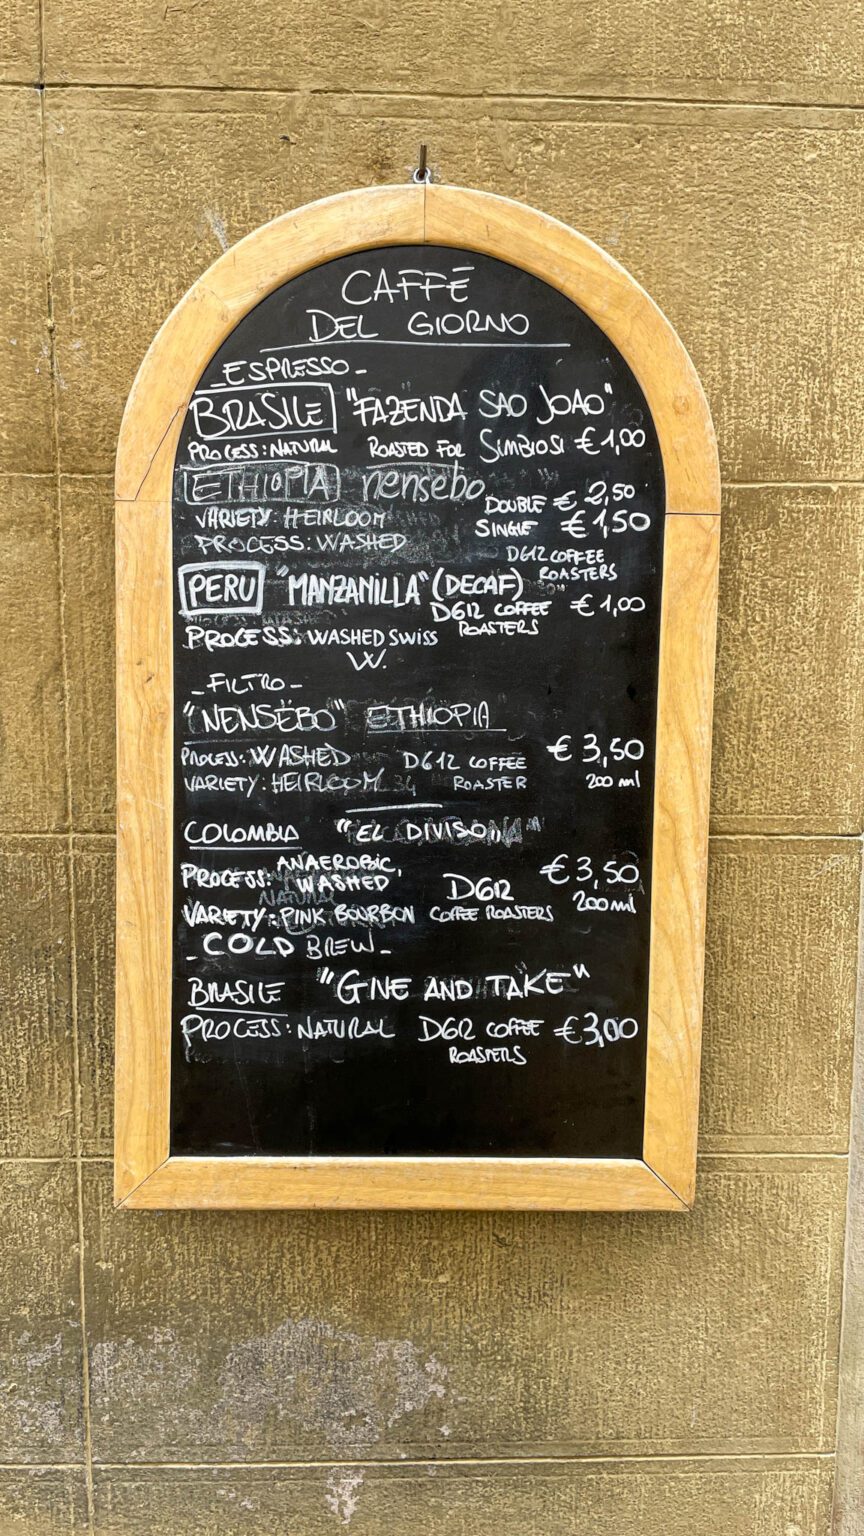 CAFFĒ
DEL GIORNO
_ESPRESSO_
BRASILE "FAZENDA SAO JOAO"
PROCESS: NATURAL ROASTED FOR SIMBIOSI € 1,00
ETHIOPIA nensebo
DOUBLE € 2,50
VARIETY: HEIRLOOM SINGLE € 1,50
PROCESS: WASHED D612 COFFEE
ROASTERS
PERU "MANZANILLA" (DECAF)
D612 COFFEE € 1,00
ROASTERS
PROCESS: WASHED SWISS
W.
_FILTRO_
"NENSEBO" ETHIOPIA
PROCESS: WASHED D612 COFFEE € 3,50
VARIETY: HEIRLOOM ROASTER 200 ml
COLOMBIA "EL DIVISO"
PROCESS: ANAEROBIC, € 3,50
WASHED D612 200 ml
VARIETY: PINK BOURBON COFFEE ROASTERS
_COLD BREW_
BRASILE "GIVE AND TAKE"
PROCESS: NATURAL D612 COFFEE € 3,00
ROASTERS